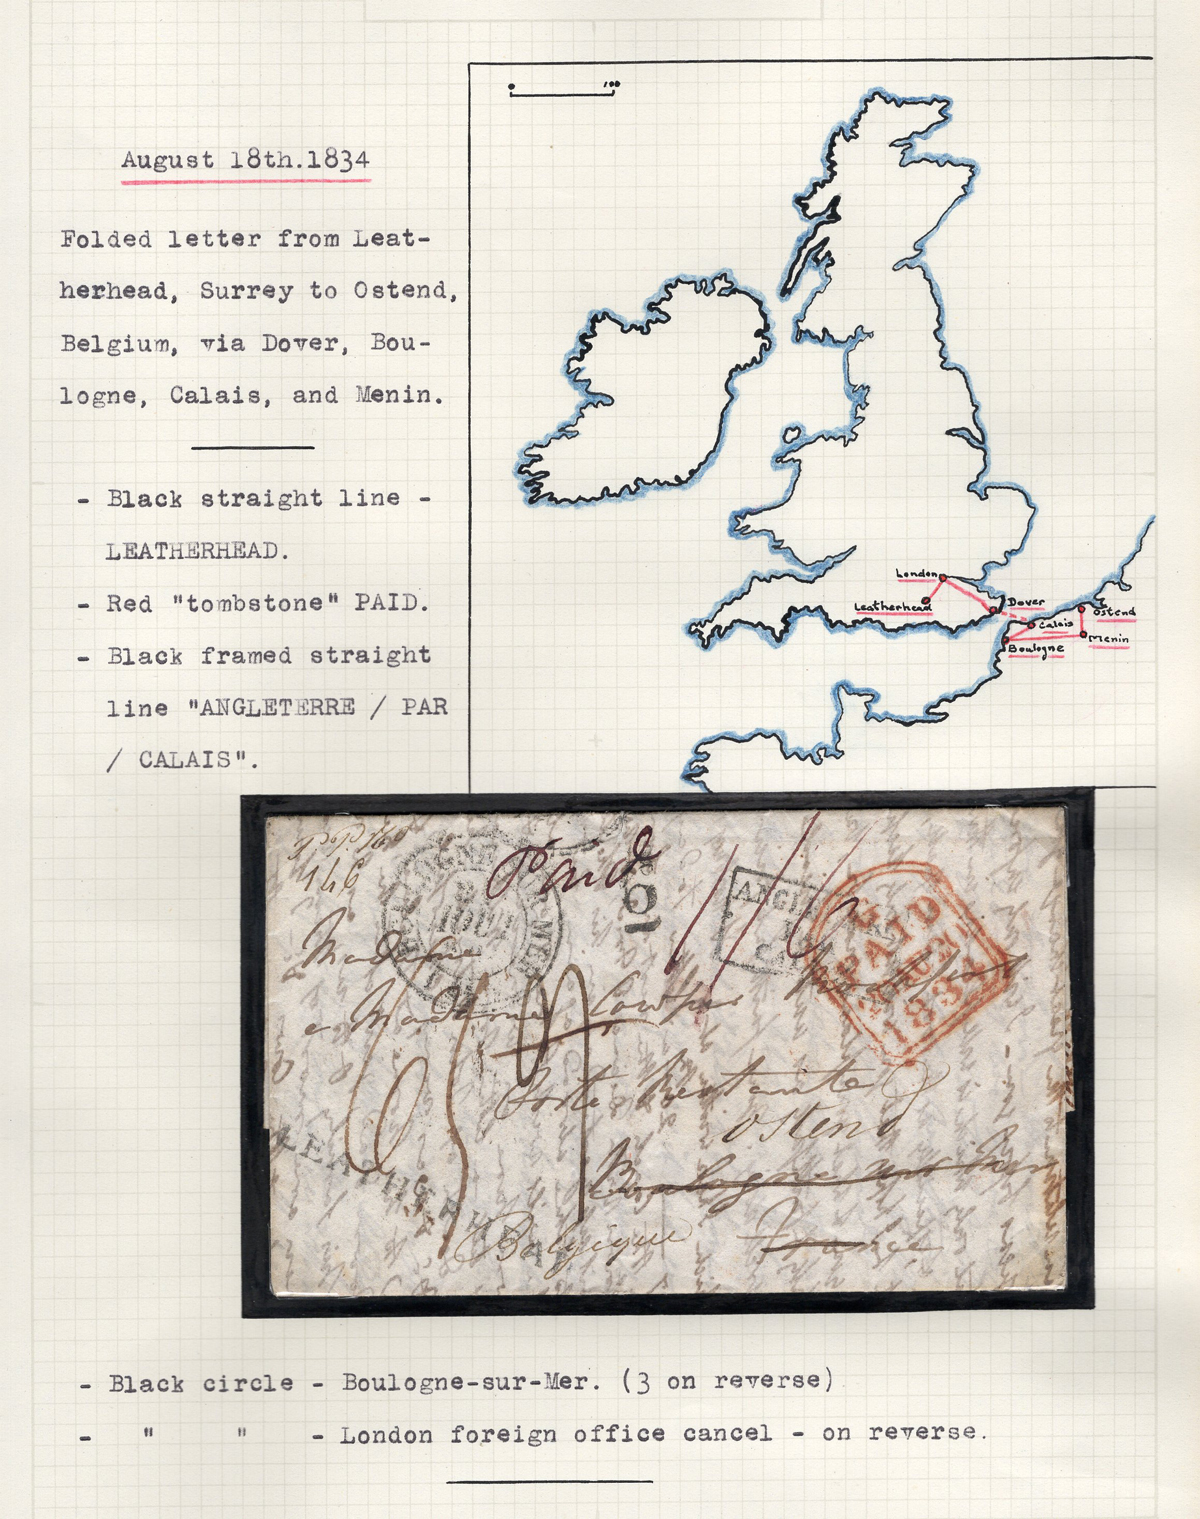 100
August 18th.1834
Folded letter from Leat-
herhead, Surrey to Ostend,
Belgium, via Dover, Bou-
logne, Calais, and Menin.
- Black straight line -
LEATHERHEAD.
- Red "tombstone" PAID.
- Black framed straight
line "ANGLETERRE / PAR
/ CALAIS".
London
Leatherhead
Dover
Calais
Ostend
Menin
Boulogne
146
Paid
1/6
ANGL
PAID
1834
BOULOGNE
MER
Madame
Madame Cowper
Poste Restante
Ostend
Boulogne sur Mer
LEATHERHEAD
Belgique
France
- Black circle - Boulogne-sur-Mer. (3 on reverse)
- " " - London foreign office cancel - on reverse.